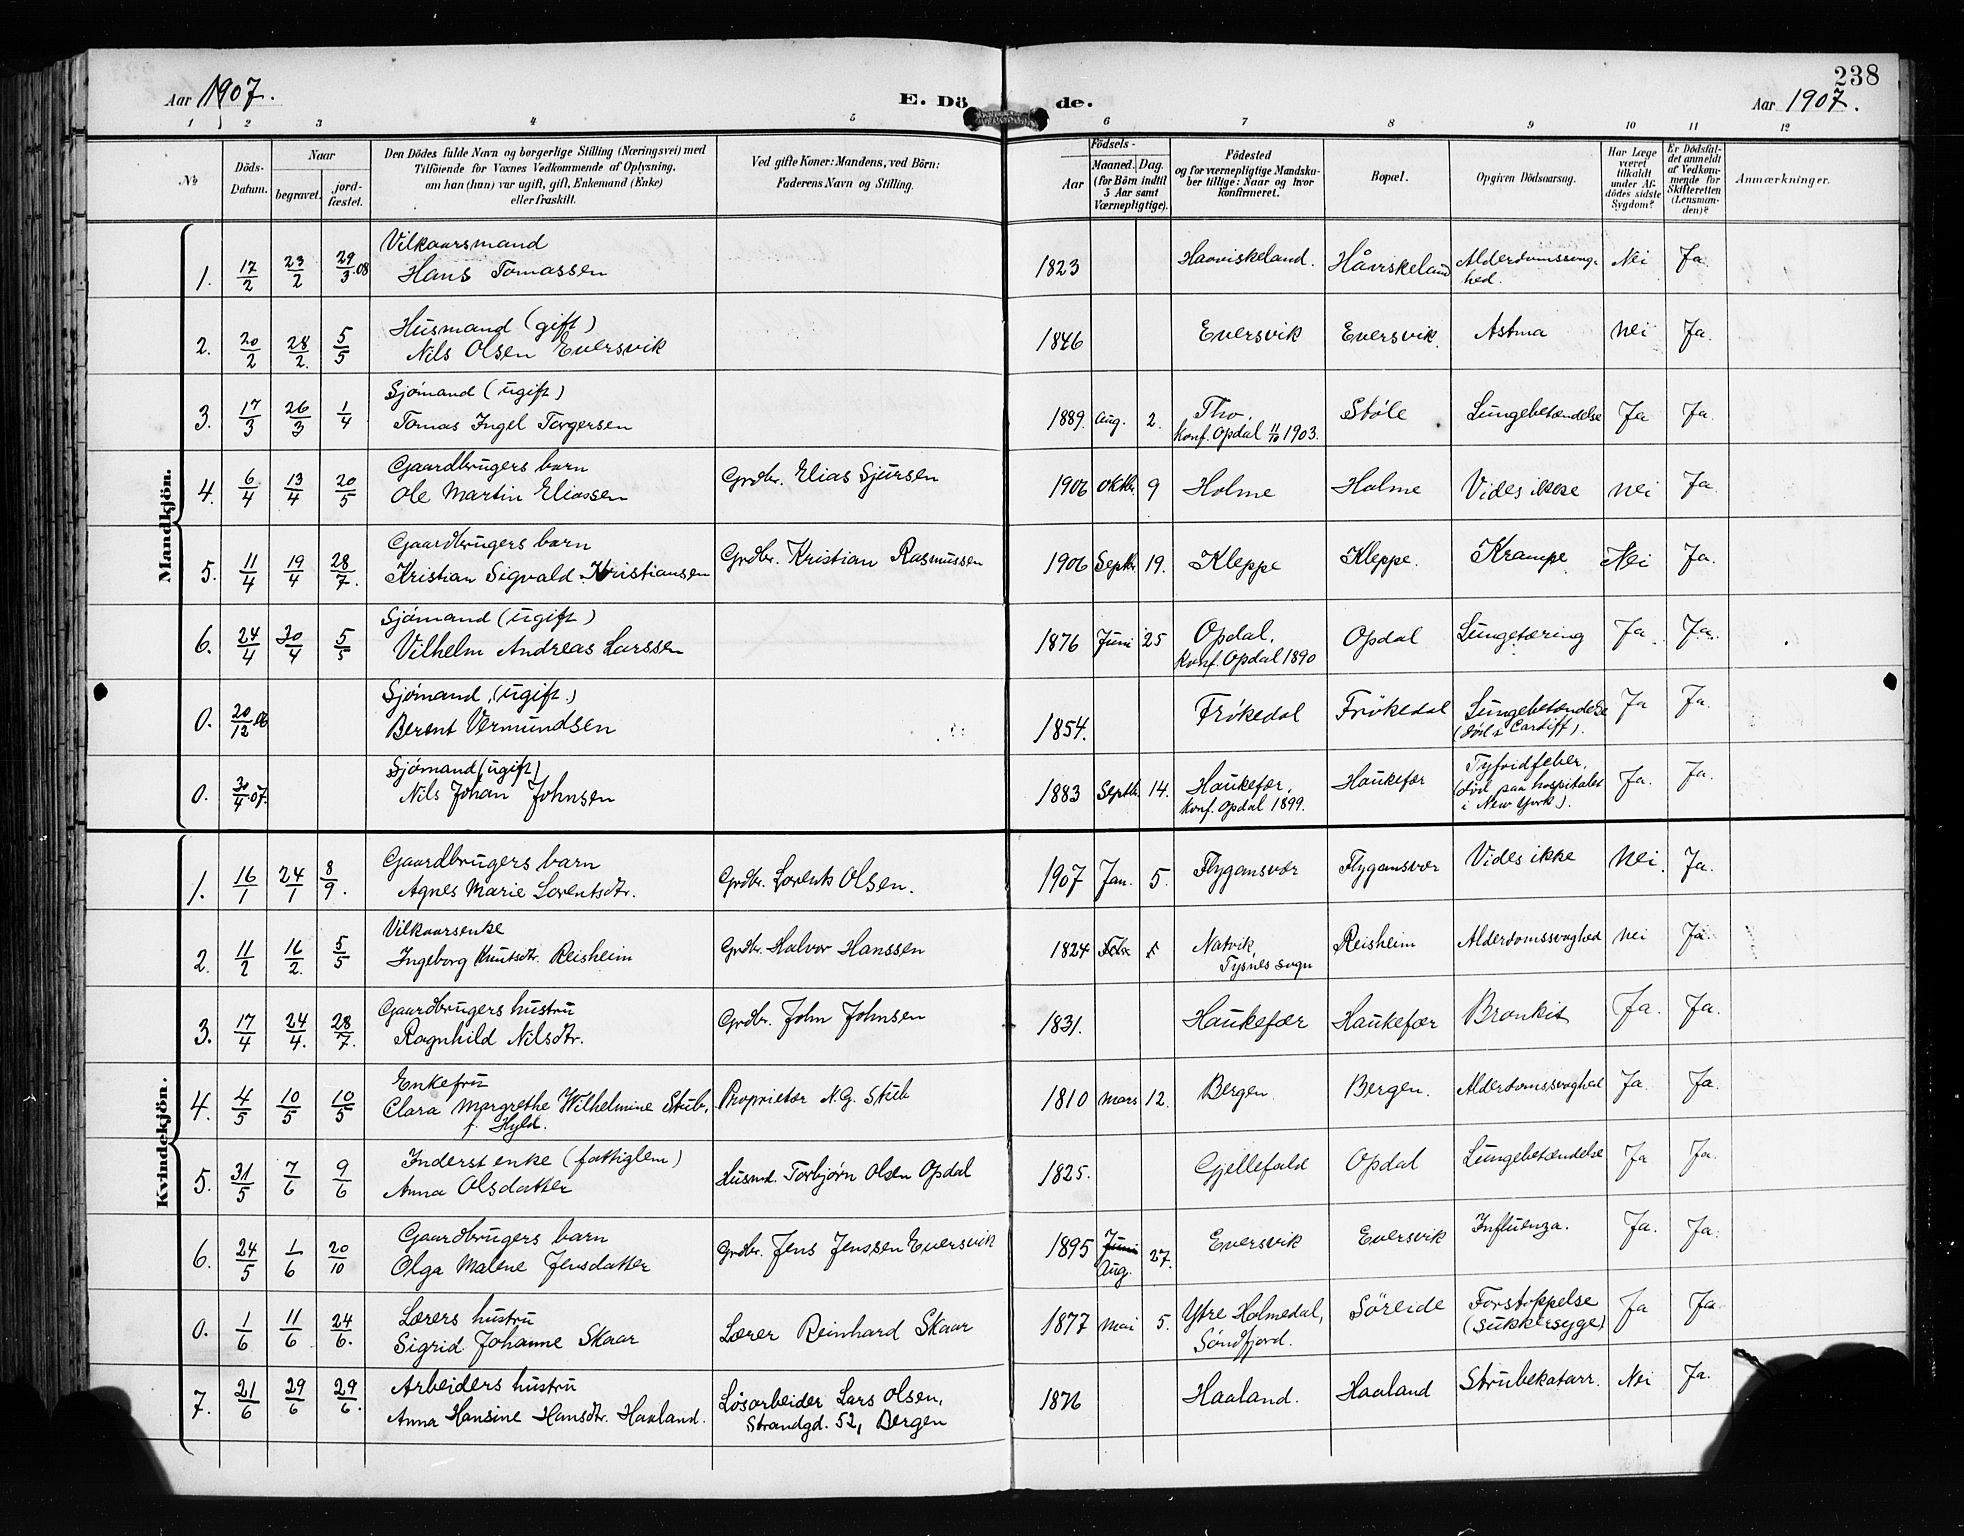 238
Aar 1907. E. Dö de. Aar 1907.
1 2 3 4 5 6 7 8 9 10 11 12
№ Döds-Datum. Naar begravet. jord-fæstet. Den Dödes fulde Navn og borgerlige Stilling (Næringsvei) med Tilföiende for Voxnes Vedkommende af Oplysning, om han (hun) var ugift, gift, Enkemand (Enke) eller fraskilt. Ved gifte Koner: Mandens, ved Börn: Faderens Navn og Stilling. Födsels- Aar Maaned. Dag. (for Börn indtil 5 Aar samt Værnepligtige). Födested og for værnepligtige Mandskaber tillige: Naar og hvor konfirmeret. Bopæl. Opgiven Dödsaarsag. Har Læge været tilkaldt under Afdödes sidste Sygdom? Er Dödsfaldet anmeldt af Vedkommende for Skifteretten (Lensmanden)? Anmærkninger.
Mandkjön.
1. 17/2 23/2 29/3.08 Vilkaarsmand Hans Tomassen 1823 Haaviskeland. Håviskeland Alderdomssvaghed. Nei Ja.
2. 20/2 28/2. 5/5 Husmand (gift) Nils Olsen Eversvik 1846 Eversvik Eversvik. Astma nei Ja.
3. 17/3 26/3 1/4 Sjömand (ugift) Tomas Ingel Torgersen 1889. Aug. 2. Tho. Konf. Opdal 11/10 1903. Støle Lungebetændelse Ja Ja.
4. 6/4 13/4 20/5 Gaardbrugers barn Ole Martin Eliassen Grdbr. Elias Sjursen 1906 Oktbr. 9 Holme Holme Vides ikke nei Ja.
5. 11/4 19/4 28/7. Gaardbrugers barn Kristian Sigvald Kristiansen Grdbr. Kristian Rasmussen 1906 Septbr. 19. Kleppe Kleppe. Krampe Nei Ja.
6. 24/4 30/4 5/5 Sjömand (ugift) Vilhelm Andreas Larssen 1876 Juni 25 Opdal. Konf. Opdal 1890 Opdal Lungetæring Ja. Ja.
0. 20/12.06 Sjömand (ugift.) Berent Vermundsen 1854. Frökedal Frökedal Lungebetændelse (död i Cardiff). Ja Ja.
0. 30/4.07. Sjömand (ugift) Nils Johan Johnsen 1883 Septbr. 14. Haukefær. Konf. Opdal 1899. Haukefær Tyfoidfeber. (död paa hospitalet i New York). Ja. Ja.
Kvindekjön.
1. 16/1 24/1 8/9. Gaardbrugers barn Agnes Marie Lorentsdtr. Grdbr. Lorents Olsen. 1907 Jan. 5. Flygansvær Flygansvær Vides ikke Nei. Ja.
2. 11/2 16/2. 5/5 Vilkaarsenke Ingeborg Knutsdtr. Reisheim Grdbr. Halvor Hanssen 1824 Natvik Tysnes sogn Reisheim Alderdomssvaghed nei Ja.
3. 17/4 24/4. 28/7. Gaardbrugers hustru Ragnhild Nilsdtr. Grdbr. John Johnsen 1831. Haukefær Haukefær Bronkit Ja. Ja.
4. 4/5 10/5 10/5 Enkefru Clara Margrethe Wilhelmine Stub, f. Hyld. Proprietær N.G. Stub 1810 Mars 12. Bergen. Bergen. Alderdomssvaghed Ja. Ja.
5. 31/5 7/6 9/6 Inderst enke (fattiglem) Anna Olsdatter Husmd. Torbjørn Olsen Opdal 1825. Gjellefald Opdal Lungebetændelse Ja Ja.
6. 24/5 1/6 20/10 Gaardbrugers barn Olga Malene Jensdatter Grdbr. Jens Jenssen Eversvik 1895 Juni Aug. 27. Eversvik Eversvik Influenza. Ja. Ja.
0. 1/6 11/6 24/6. Lærers hustru Sigrid Johanne Skaar Lærer Reinhard Skaar 1877 Mai 5. Ytre Holmedal, Söndfjord. Söreide Forstoppelse (sukkersyge) Ja Ja.
7. 21/6 29/6 29/6. Arbeiders hustru Anna Hansine Hansdtr. Haaland. Løsarbeider Lars Olsen, Strandgd. 52, Bergen 1876 Haaland. Haaland Strubekatarr. Nei Ja.